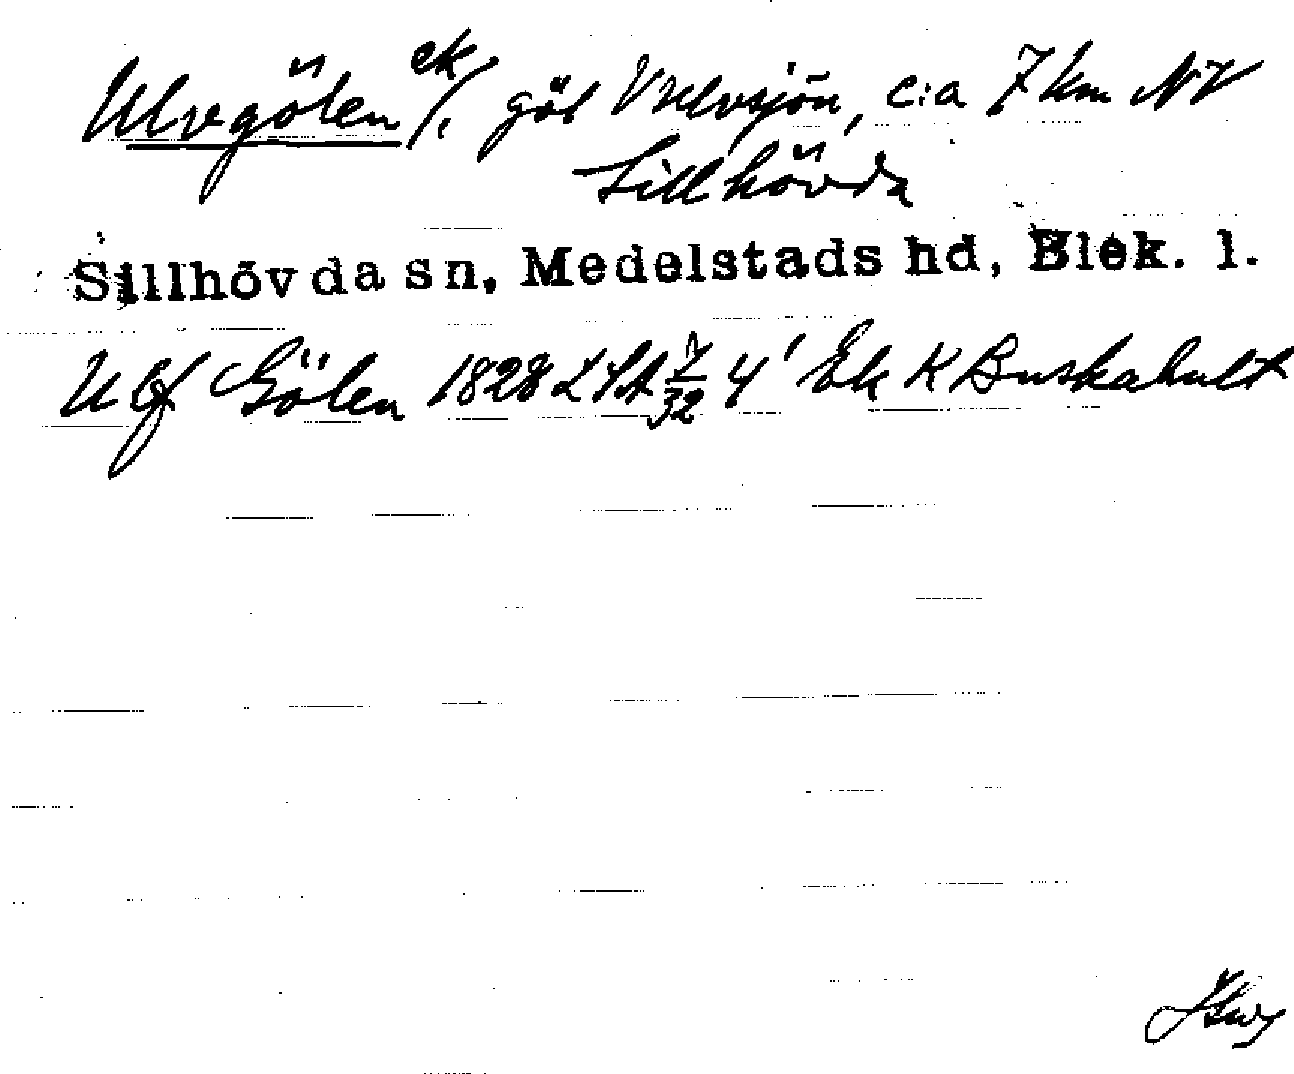 Ulvegölen ek/, göl V Helvsjön, c:a 7 km NV
Tillhövda
Sillhövda sn, Medelstads hd, Blek. l.
Ulf Gölen 1828 LSA 7/32 4' Ek K Buskahult